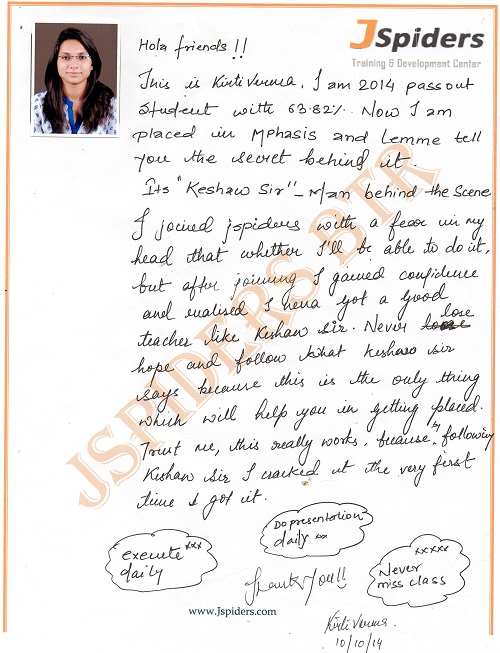 JSpiders
Training & Development Center
Hola friends!!
This is Kirti Verma. I am 2014 passout
student with 63.82%. Now I am
placed in Mphasis and Lemme tell
you the secret behind it.
Its "Keshaw Sir" - Man behind the Scene
I joined jspiders with a fear in my
head that whether I'll be able to do it,
but after joining I gained confidence
and realised I have got a good
teacher like Keshaw sir. Never lose
hope and follow what Keshaw sir
says because this is the only thing
which will help you in getting placed.
Trust me, this really works. because by following
Keshaw Sir I cracked it the very first
time I got it.
JSPIDERS BTR
execute xxx
daily
Do presentation
daily xx
xxxxx
Never
miss class
Thank You!!
www.Jspiders.com
Kirti Verma.
10/10/14